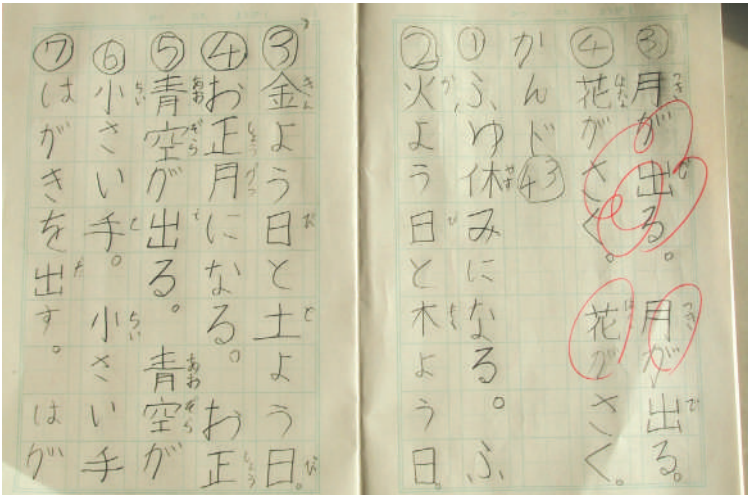 ③月が出る。 月が出る。
④花がさく。 花がさく。
かんド㊸
①ふゆ休みになる。 ふ
②火よう日と木よう日。
③金よう日と土よう日。
④お正月になる。 お正
⑤青空が出る。 青空が
⑥小さい手。 小さい手
⑦はがきを出す。 はが